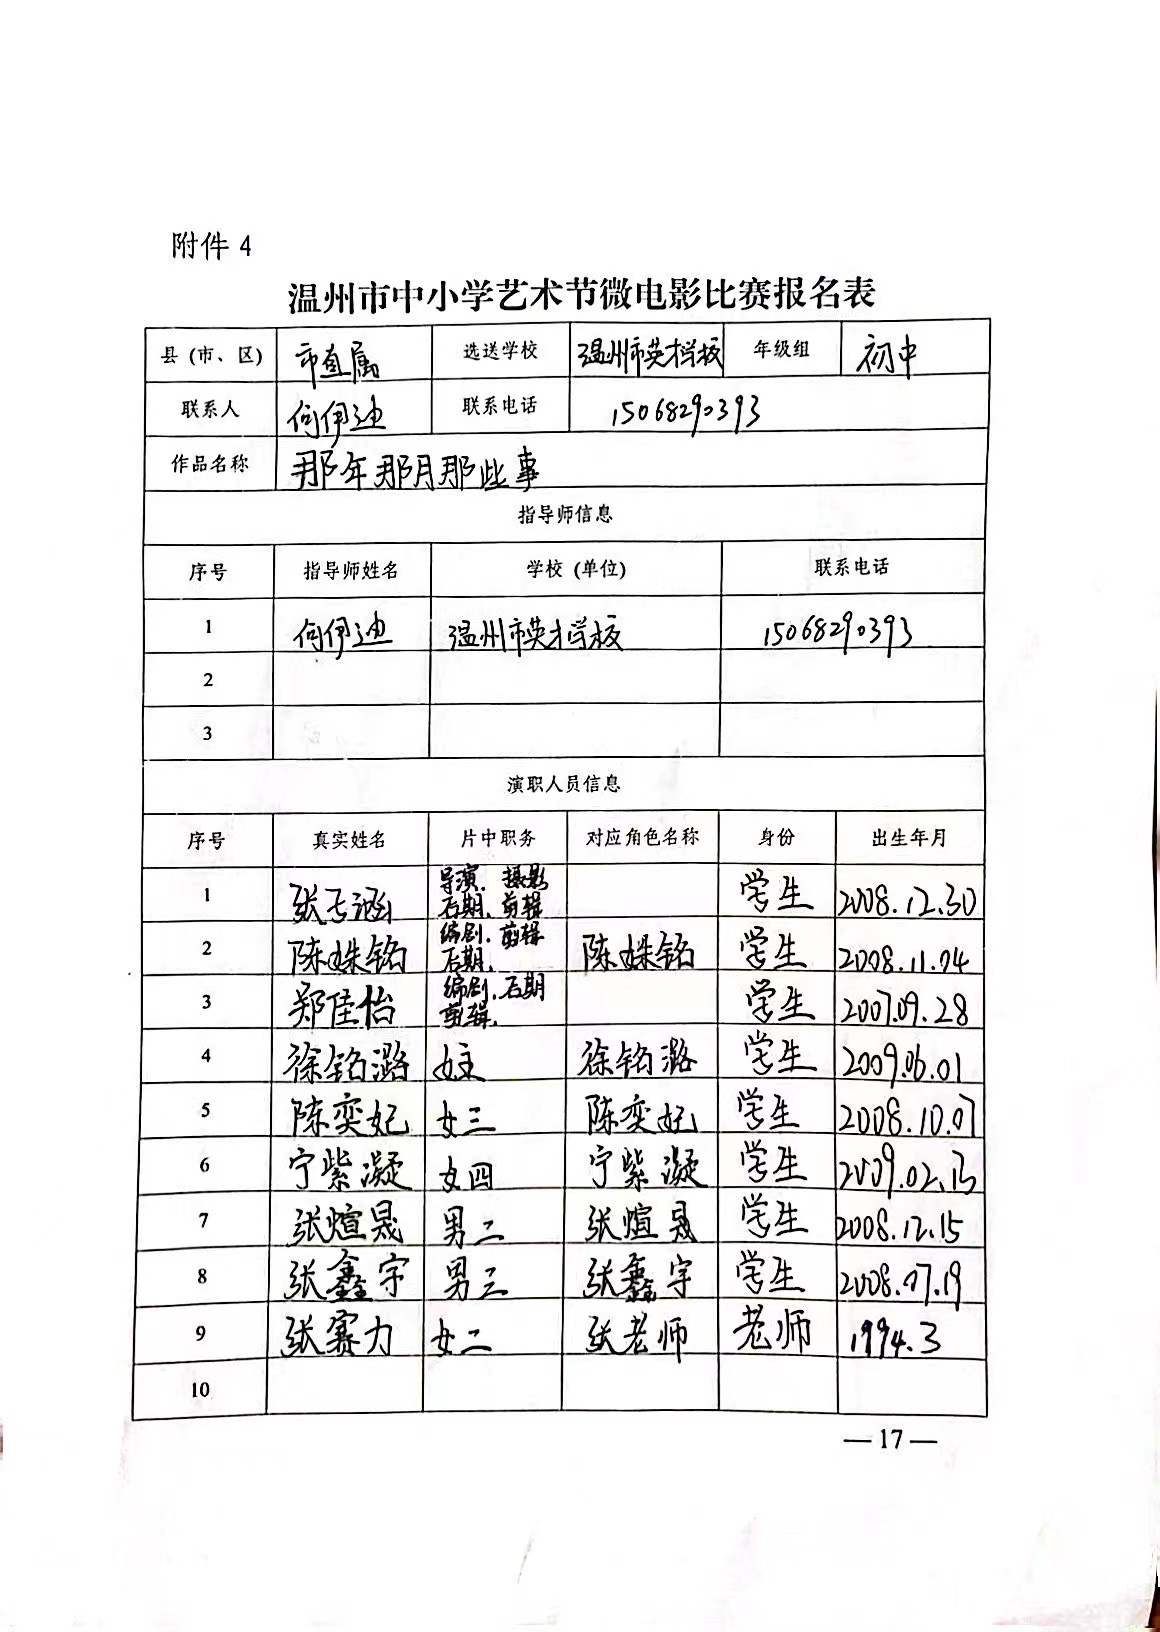 附件 4
温州市中小学艺术节微电影比赛报名表
县 (市、区) 市直属 选送学校 温州市英才学校 年级组 初中
联系人 何伊迪 联系电话 15068290393
作品名称 那年那月那些事
指导师信息
序号 指导师姓名 学校 (单位) 联系电话
1 何伊迪 温州市英才学校 15068290393
2
3
演职人员信息
序号 真实姓名 片中职务 对应角色名称 身份 出生年月
1 张 涵 导演、摄影 学生 2008.12.30
后期、剪辑
2 陈姝铭 编剧、剪辑 陈姝铭 学生 2008.11.04
后期、
3 郑佳怡 编剧、后期 学生 2007.09.28
剪辑、
4 徐铭潞 女主 徐铭潞 学生 2009.06.01
5 陈奕妃 女三 陈奕妃 学生 2008.10.07
6 宁紫凝 女四 宁紫凝 学生 2009.02.13
7 张煊晟 男二 张煊晟 学生 2008.12.15
8 张鑫宇 男三 张鑫宇 学生 2008.07.19
9 张赛力 女二 张老师 老师 1994.3
10
— 17 —